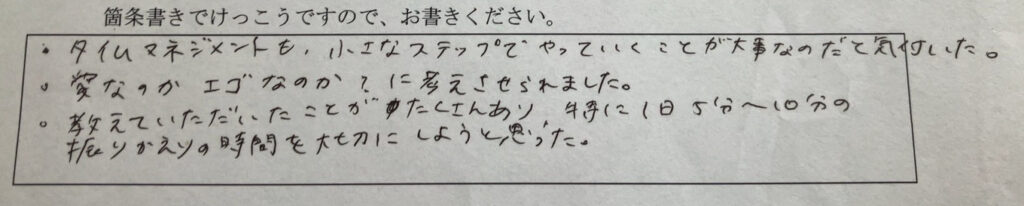 箇条書きでけっこうですので、お書きください。
・タイムマネジメントも、小さなステップでやっていくことが大事なのだと気付いた。
・愛なのかエゴなのか?に考えさせられました。
・教えていただいたことがたくさんあり、特に1日5分〜10分の
振りかえりの時間を大切にしようと思った。